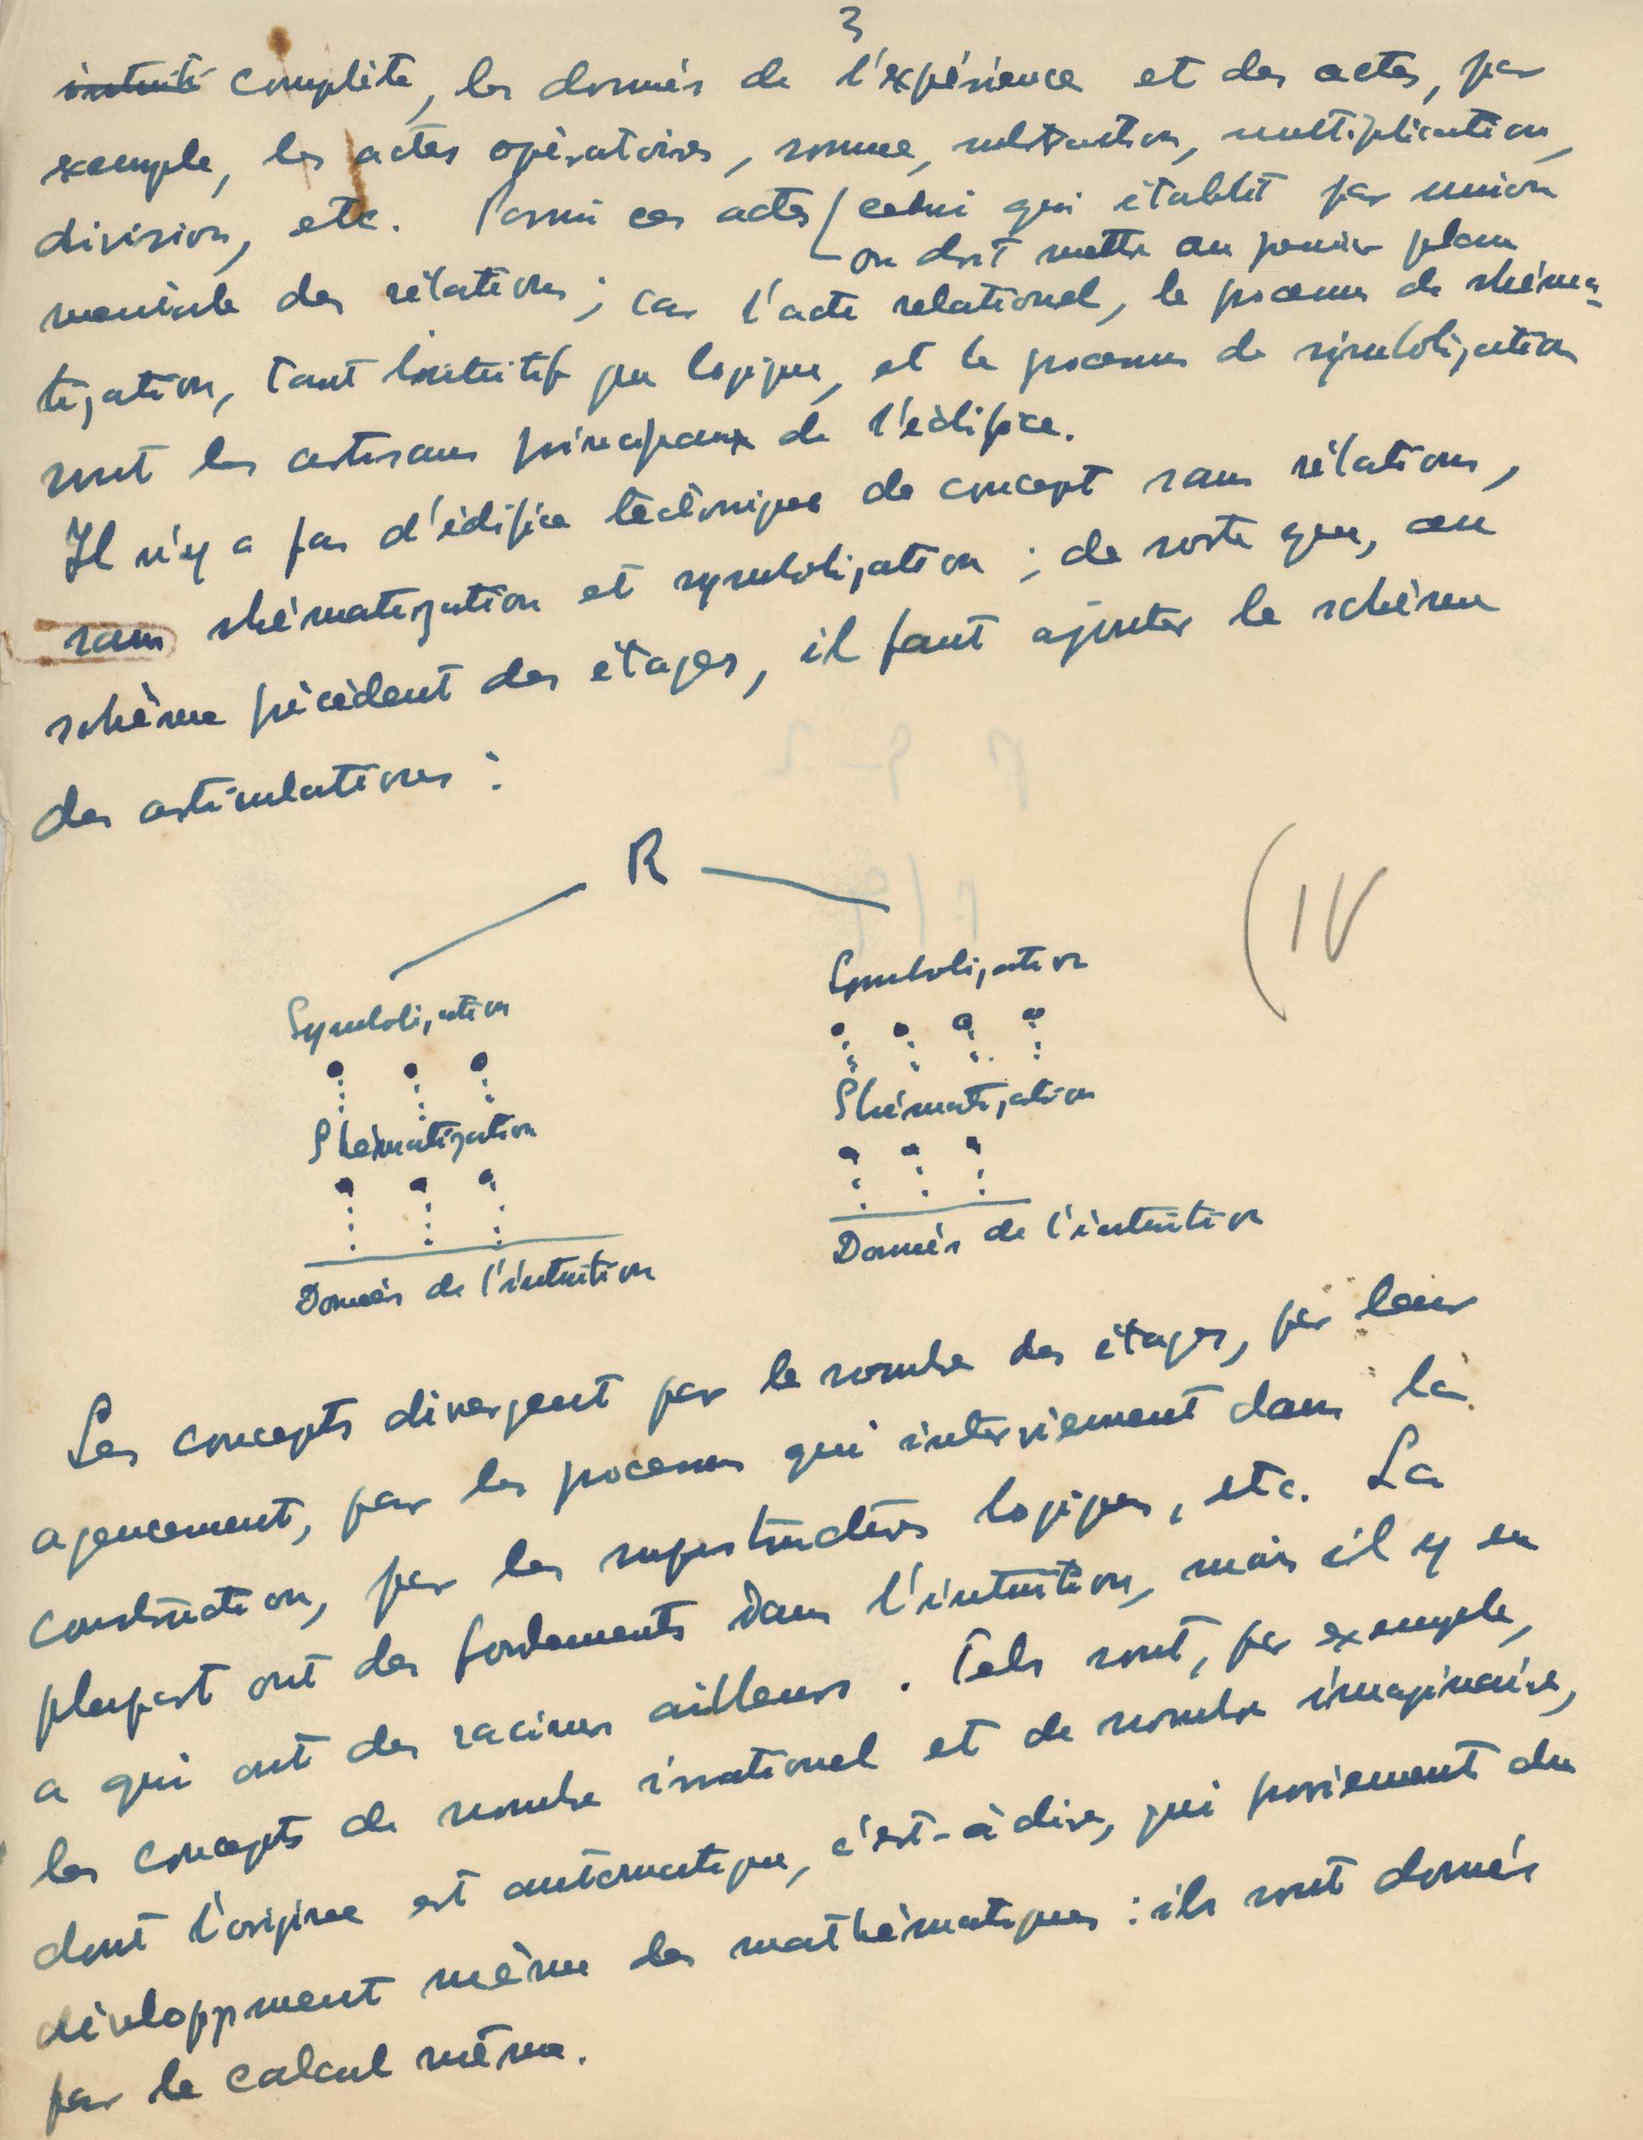 3
intuité complète, les donnés de l'expérience et des actes, par
exemple, les actes opératoires, somme, substraction, multiplication,
division, etc. Parmi ces actes / celui qui établit par union
on doit mettre au premier plan
mentale des rélations ; car l'acte relationel, le processus de shéma-
tization, tant intuitif que logique, et le processus de symbolization
sont les artisans principaux de l'édifice.
Il n'y a pas d'édifice téctonique de concept sans rélations,
sans shématization et symbolization ; de sorte que, au
schème précèdent des étages, il faut ajouter le schème
des articulations :
R
(IV
Symbolization
Symbolization
Shématization
Shématization
Donnés de l'intuition
Donnés de l'intuition
Les concepts divergent par le nombre des étages, par leur
agencement, par les processus qui interviennent dans la
construction, par les superstructures logiques, etc. La
plupart ont des fondements dans l'intuition, mais il y en
a qui ont des racines ailleurs. Tels sont, par exemple,
les concepts de nombre irrationel et de nombre imaginaire,
dont l'origine est automatique, c'est-à dire, qui proviennent du
dévéloppment même des mathématiques : ils sont donnés
par le calcul même.